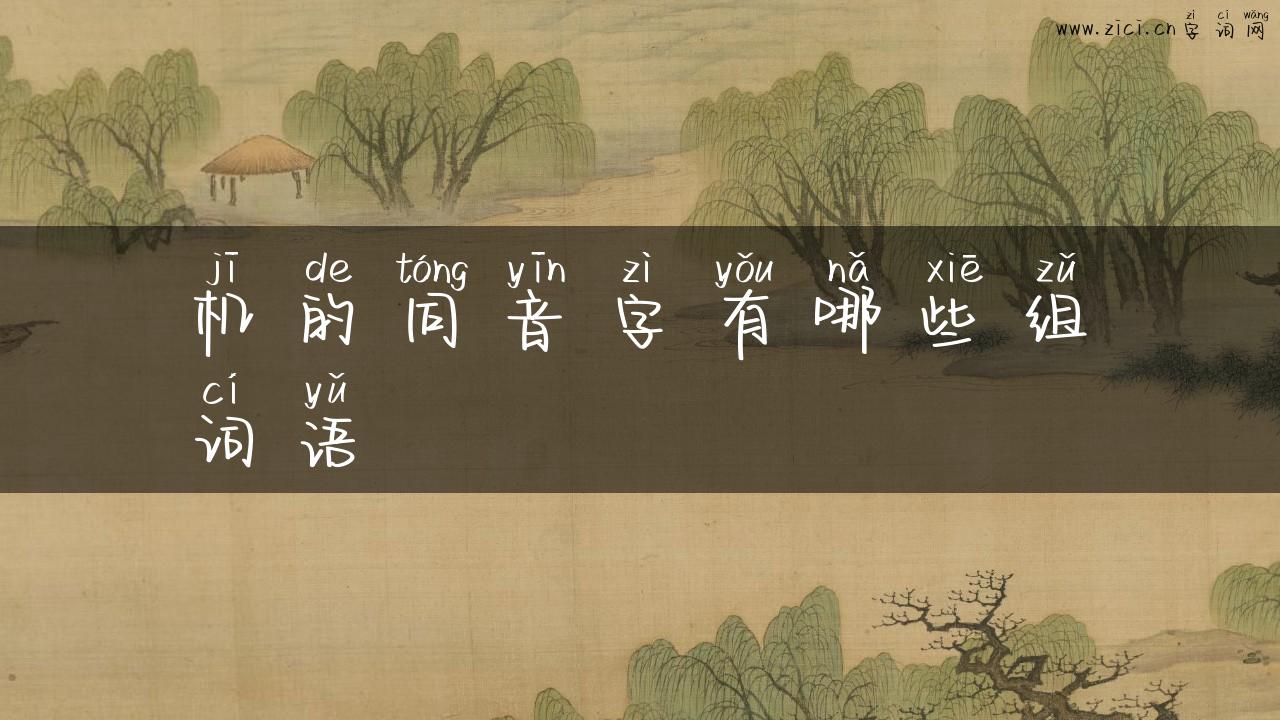 zì cí wǎng
www.zici.cn 字 词 网
jī de tóng yīn zì yǒu nǎ xiē zǔ
机 的 同 音 字 有 哪 些 组
cí yǔ
词 语